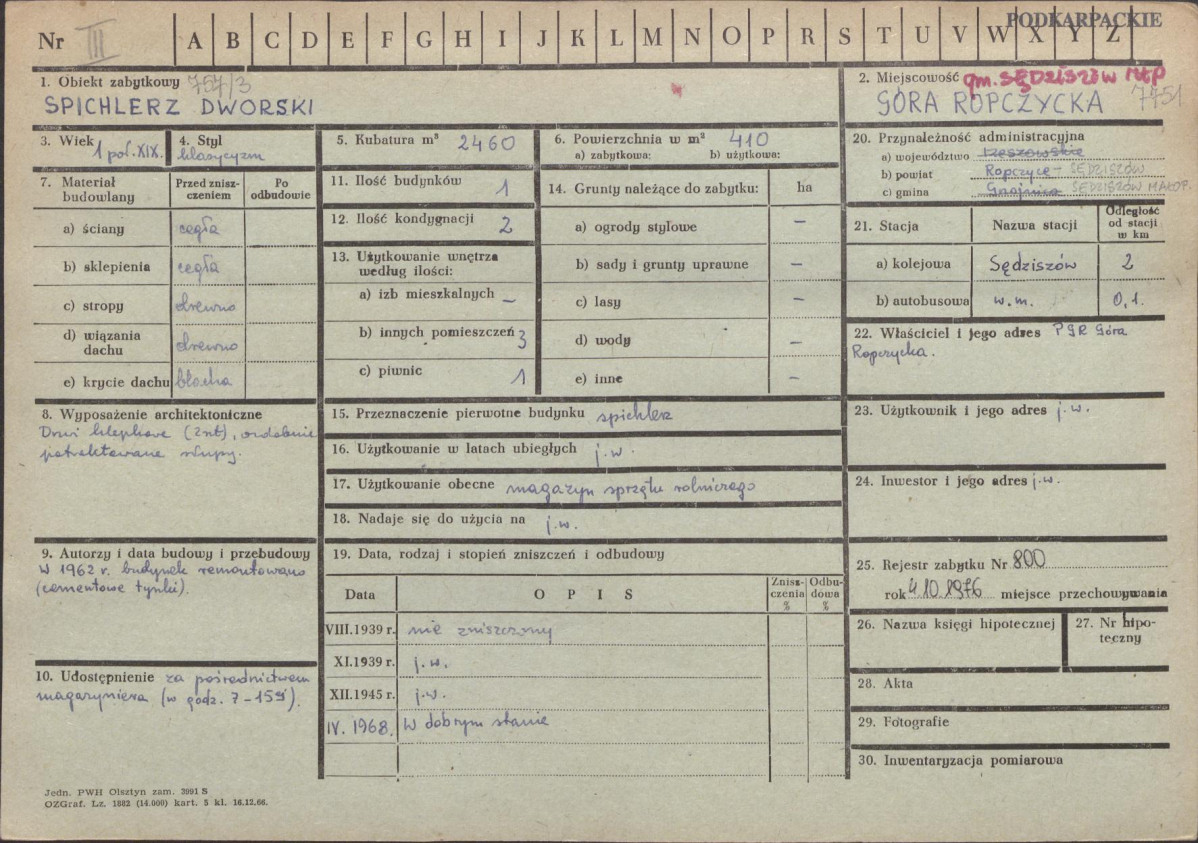 PODKARPACKIE
Nr III A B C D E F G H I J K L M N O P R S T U V W X Y Z
1. Obiekt zabytkowy 757/3
SPICHLERZ DWORSKI
2. Miejscowość gm. SĘDZISZÓW MŁP
GÓRA ROPCZYCKA 7751
3. Wiek
1 poł. XIX.
4. Styl
klasycyzm
5. Kubatura m³ 2460
6. Powierzchnia w m² 410
a) zabytkowa: b) użytkowa:
7. Materiał budowlany
Przed zniszczeniem
Po odbudowie
a) ściany cegła
b) sklepienia cegła
c) stropy drewno
d) wiązania dachu drewno
e) krycie dachu blacha
8. Wyposażenie architektoniczne
Drzwi klepkowe (2szt), ozdobnie
potraktowane słupy.
9. Autorzy i data budowy i przebudowy
W 1962 r. budynek remontowano
(cementowe tynki).
10. Udostępnienie za pośrednictwem
magazyniera (w godz. 7-15).
11. Ilość budynków 1
12. Ilość kondygnacji 2
13. Użytkowanie wnętrza
według ilości:
a) izb mieszkalnych –
b) innych pomieszczeń 3
c) piwnic 1
14. Grunty należące do zabytku: ha
a) ogrody stylowe –
b) sady i grunty uprawne –
c) lasy –
d) wody –
e) inne –
15. Przeznaczenie pierwotne budynku spichlerz
16. Użytkowanie w latach ubiegłych j.w.
17. Użytkowanie obecne magazyn sprzętu rolniczego
18. Nadaje się do użycia na j.w.
19. Data, rodzaj i stopień zniszczeń i odbudowy
Data OPIS Zniszczenia % Odbudowa %
VIII.1939 r. nie zniszczony
XI.1939 r. j.w.
XII.1945 r. j.w.
IV. 1968. W dobrym stanie
20. Przynależność administracyjna
a) województwo rzeszowskie
b) powiat Ropczyce - SĘDZISZÓW
c) gmina Gnojnica SĘDZISZÓW MAŁOP.
21. Stacja Nazwa stacji Odległość od stacji w km
a) kolejowa Sędziszów 2
b) autobusowa w.m. 0,1.
22. Właściciel i jego adres PGR Góra
Ropczycka.
23. Użytkownik i jego adres j.w.
24. Inwestor i jego adres j.w.
25. Rejestr zabytku Nr 800
rok 4.10.1976 miejsce przechowywania
26. Nazwa księgi hipotecznej
27. Nr hipoteczny
28. Akta
29. Fotografie
30. Inwentaryzacja pomiarowa
Jedn. PWH Olsztyn zam. 3991 S
OZGraf. Lz. 1882 (14.000) kart. 5 kl. 16.12.66.